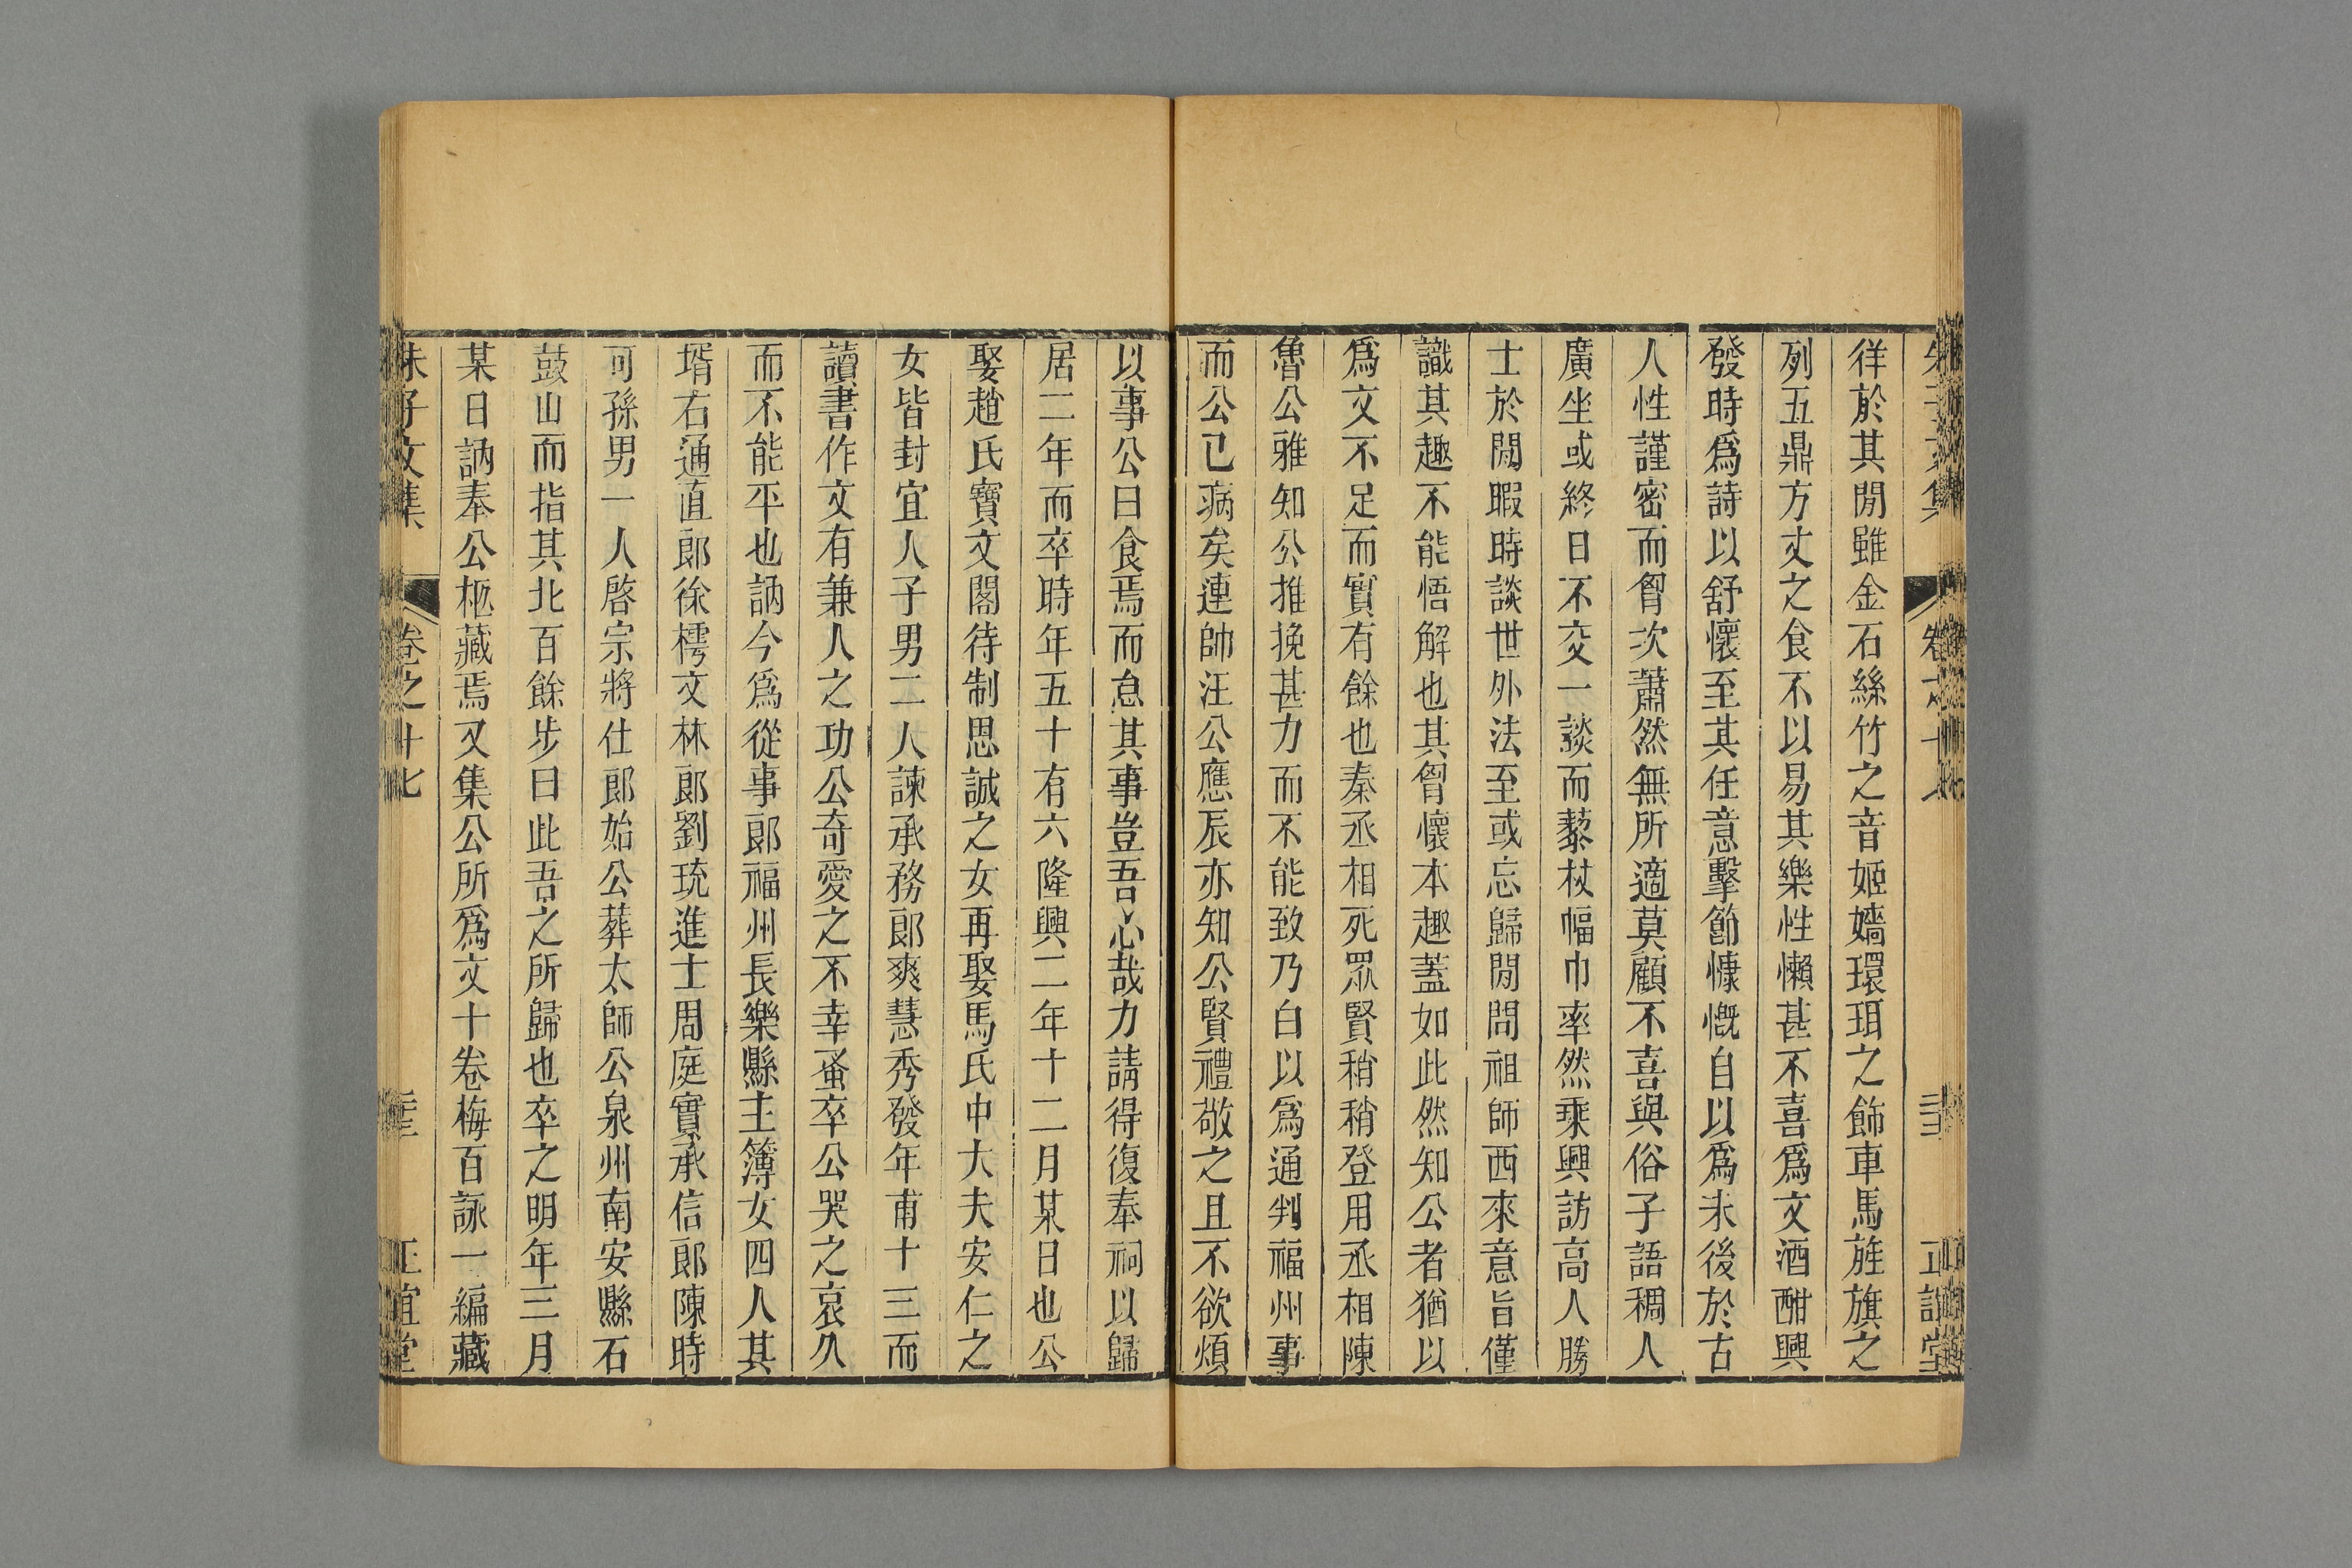 徉於其閒雖金石絲竹之音姬嬙環珥之飾車馬旌旗之
列五鼎方丈之食不以易其樂性懶甚不喜爲文酒酣興
發時爲詩以舒懷至其任意擊節慷慨自以爲未後於古
人性謹密而胷次蕭然無所適莫顧不喜與俗子語稠人
廣坐或終日不交一談而藜杖幅巾率然乘興訪高人勝
士於閒暇時談世外法至或忘歸閒問祖師西來意旨僅
識其趣不能悟解也其胷懷本趣蓋如此然知公者猶以
爲文不足而實有餘也秦丞相死眾賢稍稍登用丞相陳
魯公雅知公推挽甚力而不能致乃白以爲通判福州事
而公已病矣連帥汪公應辰亦知公賢禮敬之且不欲煩
以事公曰食焉而怠其事豈吾心哉力請得復奉祠以歸
居二年而卒時年五十有六隆興二年十二月某日也公
娶趙氏寶文閣待制思誠之女再娶馬氏中大夫安仁之
女皆封宜人子男二人諫承務郎爽慧秀發年甫十三而
讀書作文有兼人之功公奇愛之不幸蚤卒公哭之哀久
而不能平也訥今爲從事郎福州長樂縣主簿女四人其
壻右通直郎徐樗文林郎劉珫進士周庭實承信郎陳時
可孫男一人啓宗將仕郎始公葬太師公泉州南安縣石
鼓山而指其北百餘步曰此吾之所歸也卒之明年三月
某日訥奉公柩藏焉又集公所爲文十卷梅百詠一編藏
朱子文集 卷之十七 正誼堂